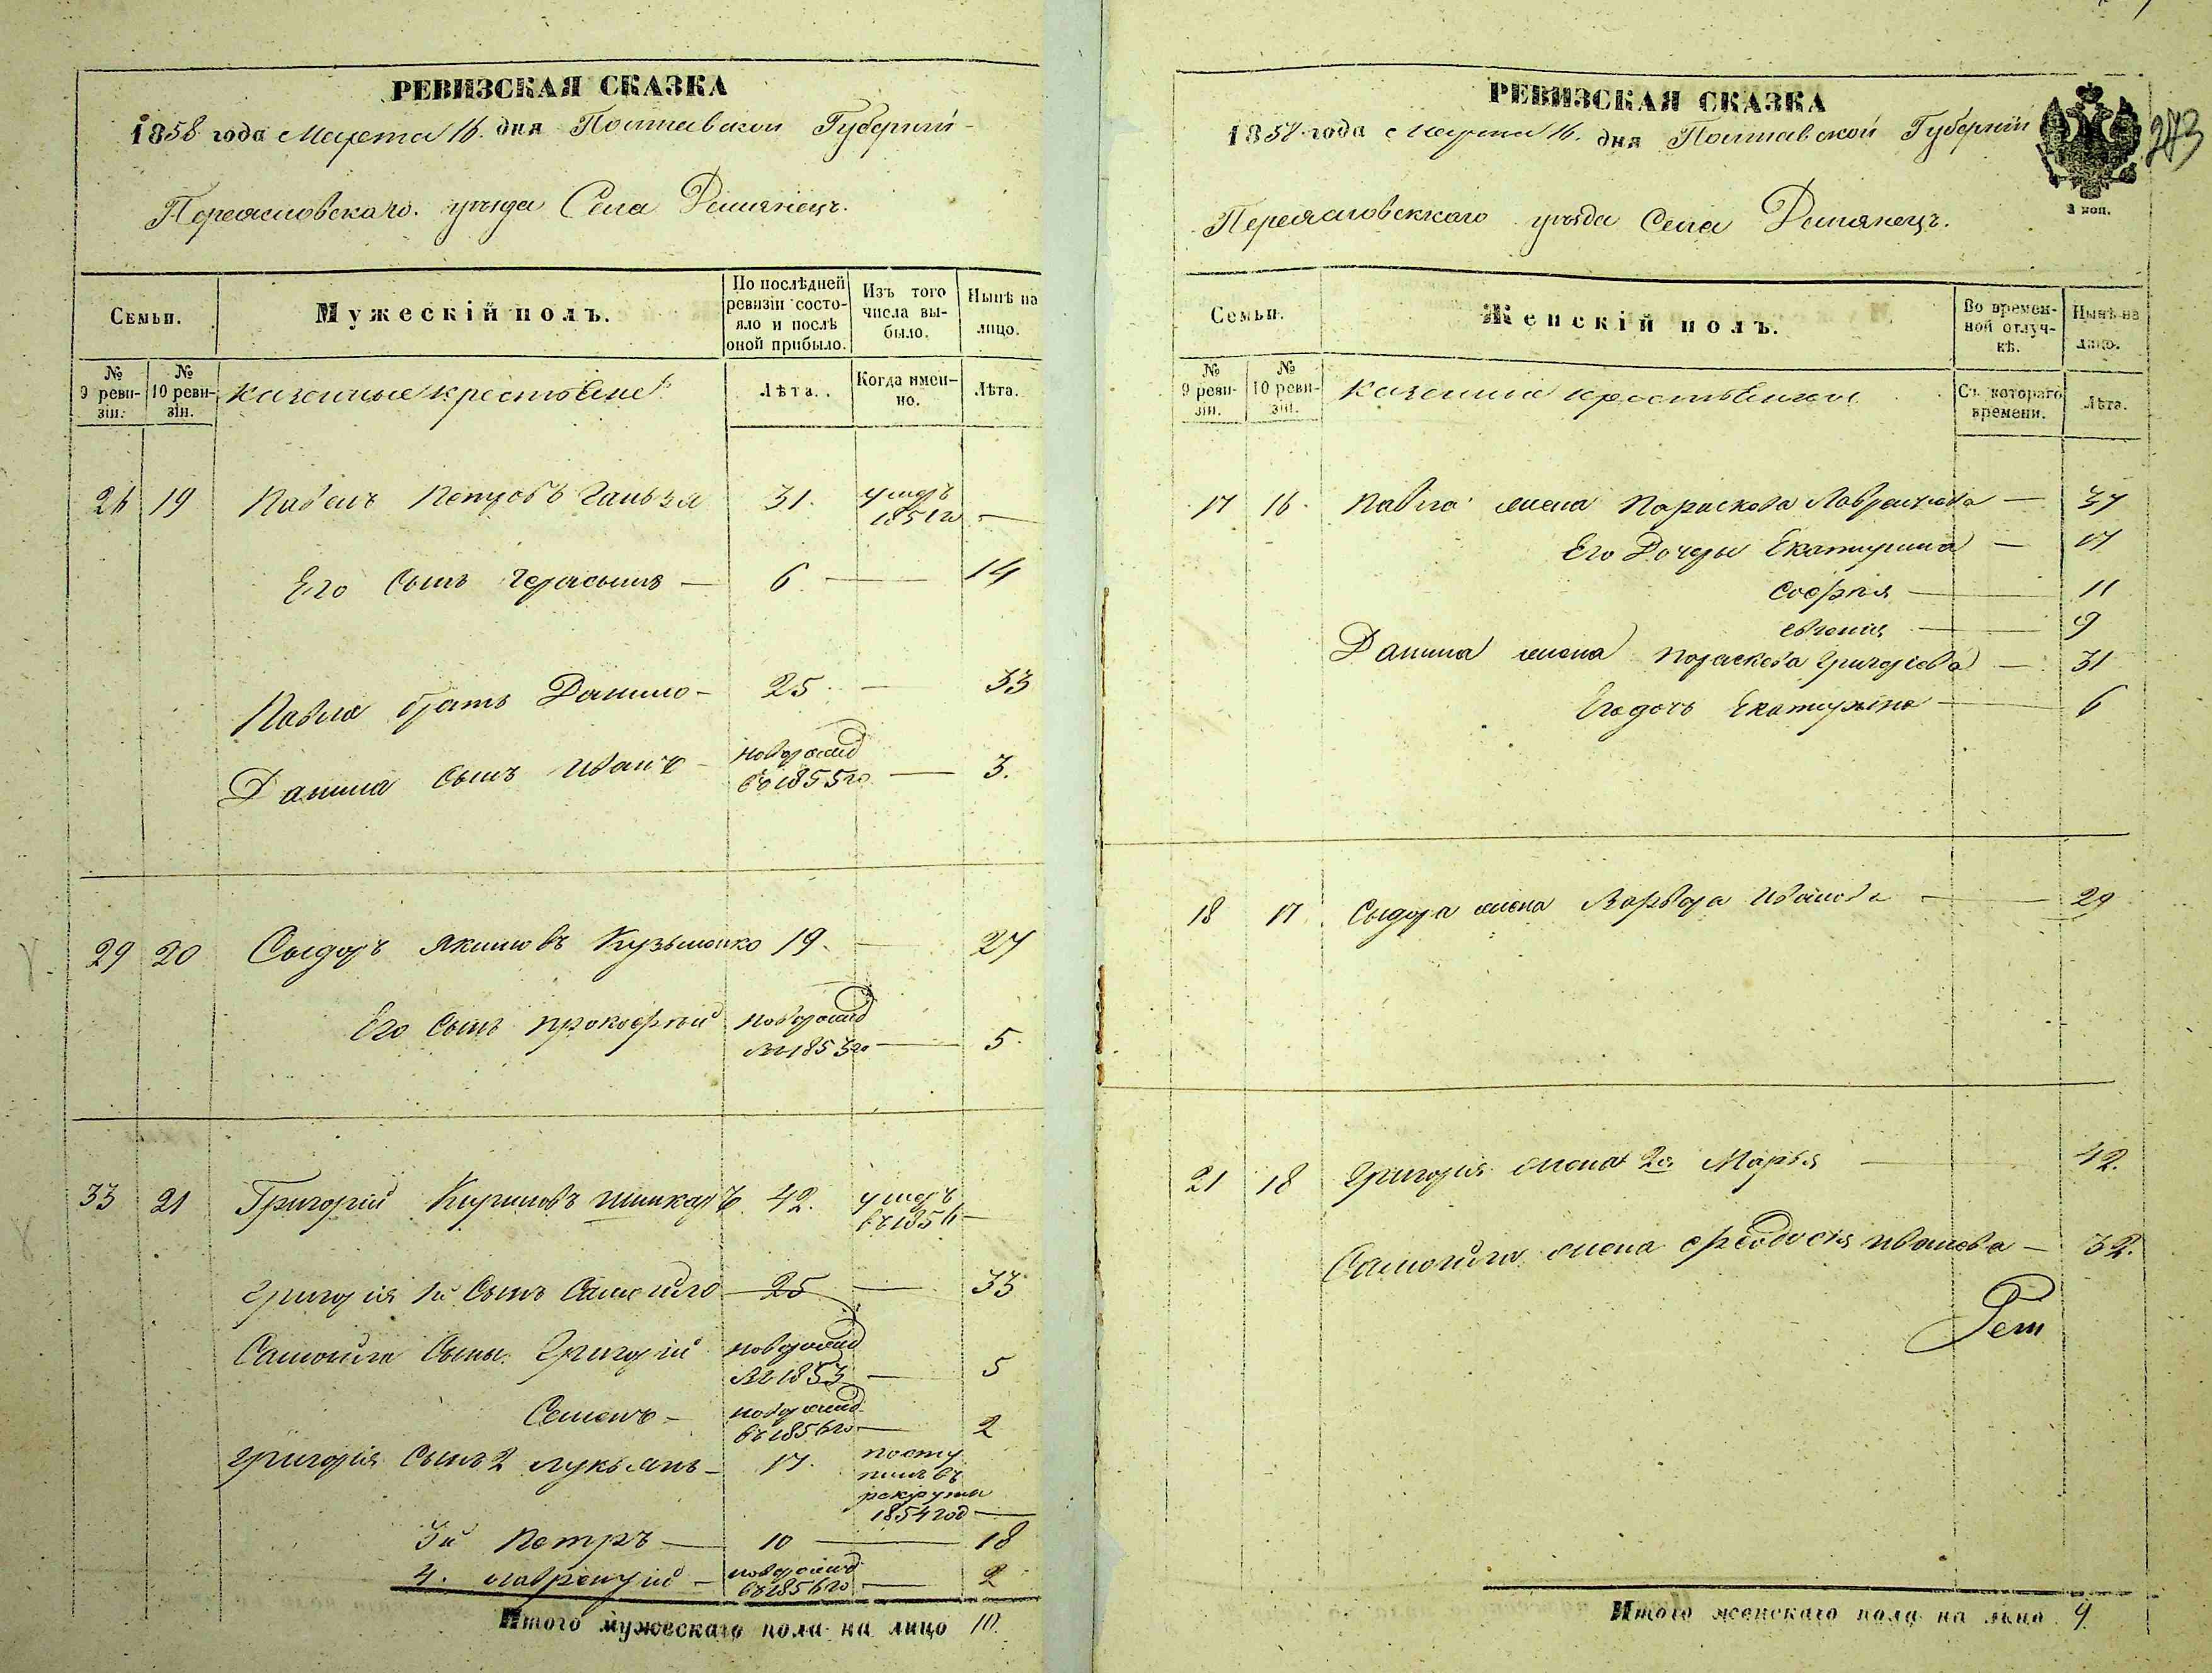 РЕВИЗСКАЯ СКАЗКА
1858 года Марта 16. дня Полтавской Губерніи
Переясловскаго. уѣзда Села Демянецъ.
Семьи.
Мужескій полъ.
По послѣдней ревизіи состояло и послѣ оной прибыло.
Изъ того числа выбыло.
Нынѣ на лицо.
№ 9 ревизіи.
№ 10 ревизіи.
казенные крестьяне
Лѣта.
Когда именно.
Лѣта.
19 Павелъ Петровъ Ганьзя 31. умеръ 1851го —
Его Сынъ Герасымъ — 6 — 14
Павла братъ Данило — 25 — 33
Данила сынъ Иванъ — новорожд въ 1855го — 3.
29 20 Сыдоръ Якимовъ Кузьменко 19. — 27
Его Сынъ прокофiй новорожд въ 1853го — 5.
33 21 Григорій Кириловъ шинкаръ 42. умеръ въ 1856 —
Григорія 1й Сынъ Самойло 25 — 33
Самойла Сыны Григорій новорожд въ 1853 — 5
Семенъ — новорожд въ 1856го — 2
Григорія Сынъ 2 лукьянъ — 17. поступилъ въ рекруты 1854 год —
3й Петръ — 10 — 18
4. лаврентій — новорожд въ 1856го — 2
Итого мужескаго пола на лицо 10.
РЕВИЗСКАЯ СКАЗКА
1858 года Марта 16. дня Полтавской Губерніи
273
2 коп.
Переясловскаго уѣзда Села Демянецъ.
Семьи.
Женскій полъ.
Во временной отлучкѣ.
Нынѣ на лицо.
№ 9 ревизіи.
№ 10 ревизіи.
казенные крестьянки
Съ котораго времени.
Лѣта.
17 16. Павла жена Параскева Лаврентіева — 37
Его Дочеры Екатерина — 17
Софія — 11
евгенія — 9
Данила жена Параскева Григорiева — 31
Его дочь Екатерина — 6
18 17. Сыдора жена Варвара Иванова — 29
21 18 Григорія жена 2я Марья — 42.
Самойла жена феодосія иванова — 32.
Итого женскаго пола на лицо 9